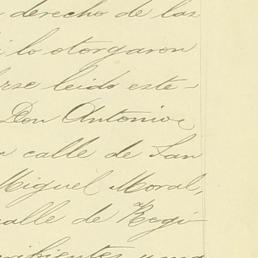 derecho de las
lo otorgaron
leido este-
Don Antonio
calle de San
Miguel Moral,
calle de Regi-